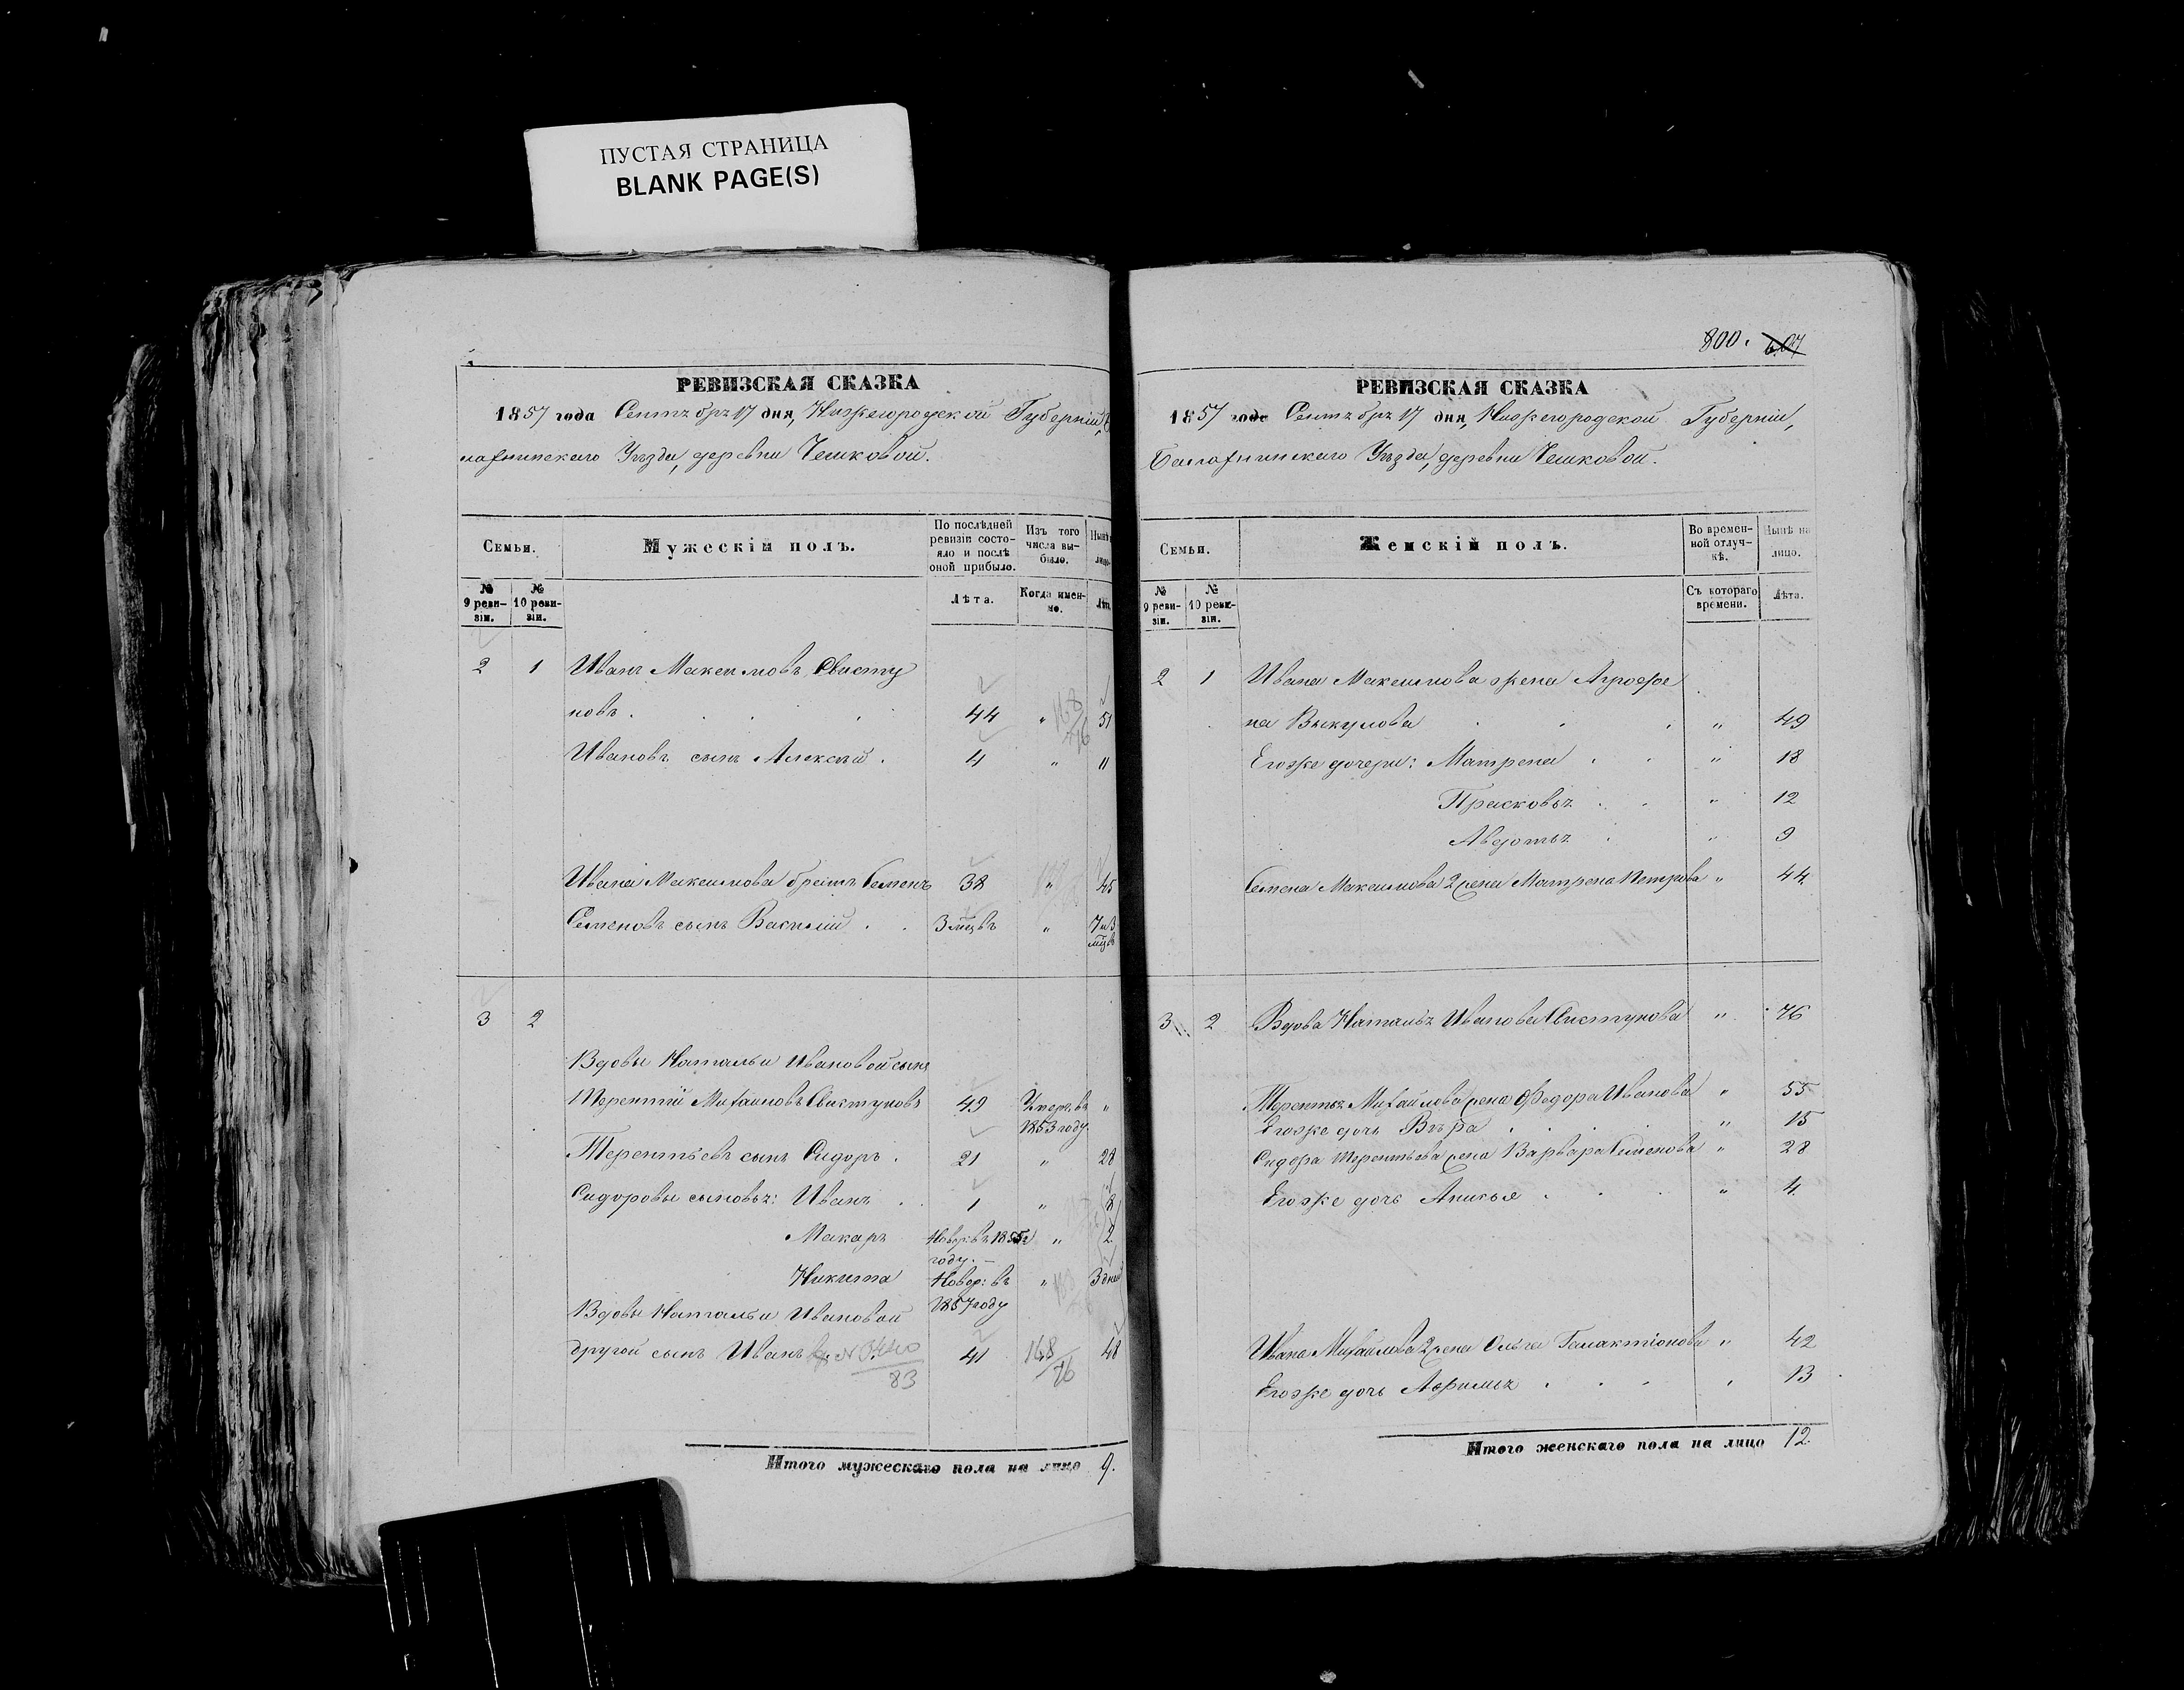 ПУСТАЯ СТРАНИЦА
BLANK PAGE(S)
РЕВИЗСКАЯ СКАЗКА
1857 года Сентября 17 дня, Нижегородской Губерніи, Ба
лахнинскаго Уѣзда, деревни
Семьи.
Мужескій полъ.
По послѣдней ревизіи состояло и послѣ оной прибыло.
Изъ того числа выбыло.
Нынѣ
лицо
№ 9 ревизіи.
№ 10 ревизіи.
Лѣта.
Когда именно.
Лѣта
2 1 Иванъ Максимовъ Свисту
новъ . . . . 44 " 51
Ивановъ сынъ Алексѣй . 4 " 11
Ивана Максимова братъ Семенъ 38 " 45
Семеновъ сынъ Василій . . 3 мцвъ " 7 и 3
мцв
3 2
Вдовы Натальи Ивановой сынъ
Терентій Михайловъ Свистуновъ 49 Умеръ въ "
1853 году.
Терентьевъ сынъ Сидоръ . 21 " 28
Сидоровы сыновья: Иванъ . . 1 " 8
Макаръ Новор: въ 1855 " 2
году.
Никита Новор: въ " 3 дней
1857 году
Вдовы Натальи Ивановой
другой сынъ Иванъ 41 168/76 48
83
Итого мужескаго пола на лицо 9.
800. 607
РЕВИЗСКАЯ СКАЗКА
1857 года Сентября 17 дня, Нижегородской Губерніи,
Балахнинскаго Уѣзда, деревни
Семьи.
Женскій полъ.
Во временной отлучкѣ.
Нынѣ на лицо.
№ 9 ревизіи.
№ 10 ревизіи.
Съ котораго времени.
Лѣта.
2 1 Ивана Максимова жена Агрофе
на Викулова . . . " 49
Егоже дочери: Матрена . . " 18
Прасковья . . " 12
Авдотья . " 9
Семена Максимова 2 жена Матрена Петрова " 44.
3 2 Вдова Наталья Иванова Свистунова " 76
Терентья Михайлова жена Федора Иванова " 55
Егоже дочь Вѣра . . . " 15
Сидора Терентьева жена Варвара Семенова " 28
Егоже дочь . . . " 4.
Ивана Михайлова 2 жена Ольга Галактіонова " 42
Егоже дочь Афимья . . . . 13
Итого женскаго пола на лицо 12.